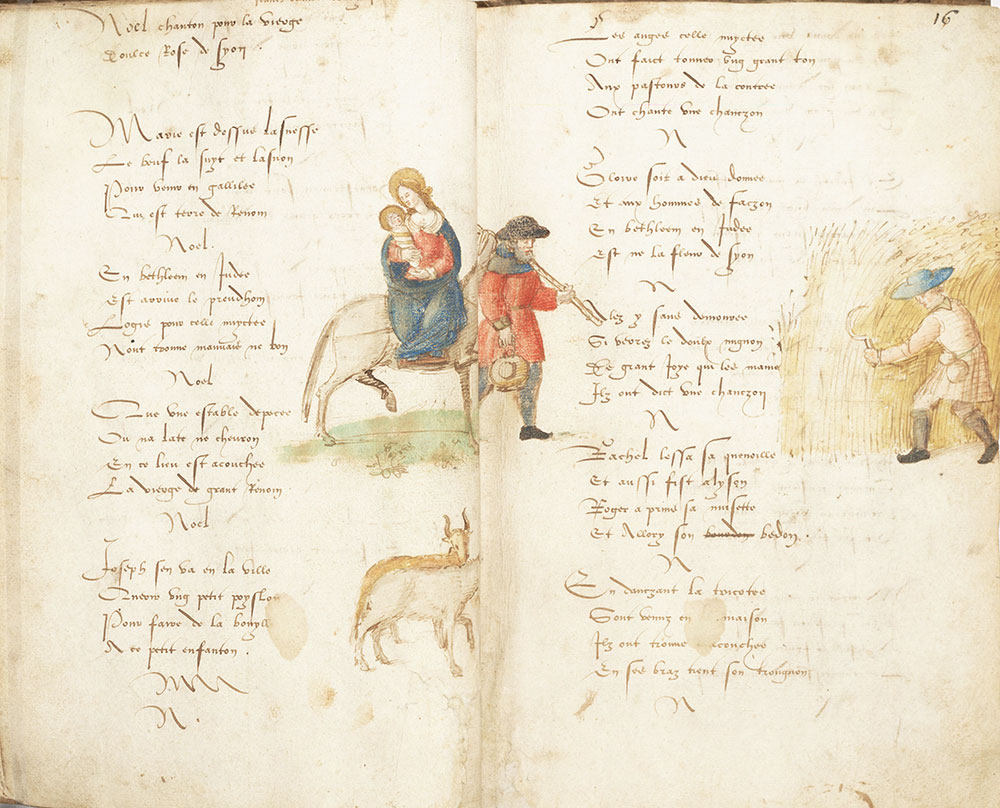 Noel chanton pour la vierge
Doulce Rose de Syon.
Marie est dessus lasnesse
Le beuf la suyt et lasnon
Pour venir en gallilee
Qui est terre de Renom
Noel.
En bethleem en Judee
Est arrive le preudhom
Logis pour celle nuyctee
Nont trouve mauvais ne bon
Noel
Que une estable depecee
Ou na late ne chevron
En ce lieu est acouchee
La vierge de grant Renom
Noel
Joseph sen va en la ville
Querir ung petit
Pour faire de la
A ce petit enfanton.
N.
16
Les anges celle nuyctee
Ont faict tonner ung grant ton
Aux pastours de la contree
Ont chante une chanczon
N
Gloire soit a dieu donnee
Et aux hommes de faczon
En bethleem en Judee
Est ne la fleur de Syon
N
Alez y sans demouree
Si verrez le doulx mignon
De grant Joye qui les maine
Ilz ont dict une chanczon
N
Rachel lessa sa quenoille
Et aussi fist alyson
Roger a prins sa musette
Et Allory son bourdon bedon.
N
En danczant la tricotee
Sont venuz en maison
Ilz ont trouve acouchee
En ses braz tient son
N